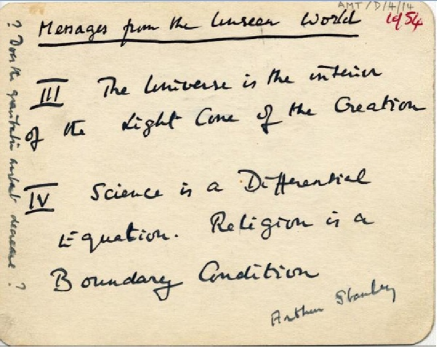 Messages from the Unseen World
AMT/D/4/14
1954
III The Universe is the interior
of the Light Cone of the Creation
IV Science is a Differential
Equation. Religion is a
Boundary Condition
Arthur Stanley
? Does the gravitation constant decrease ?